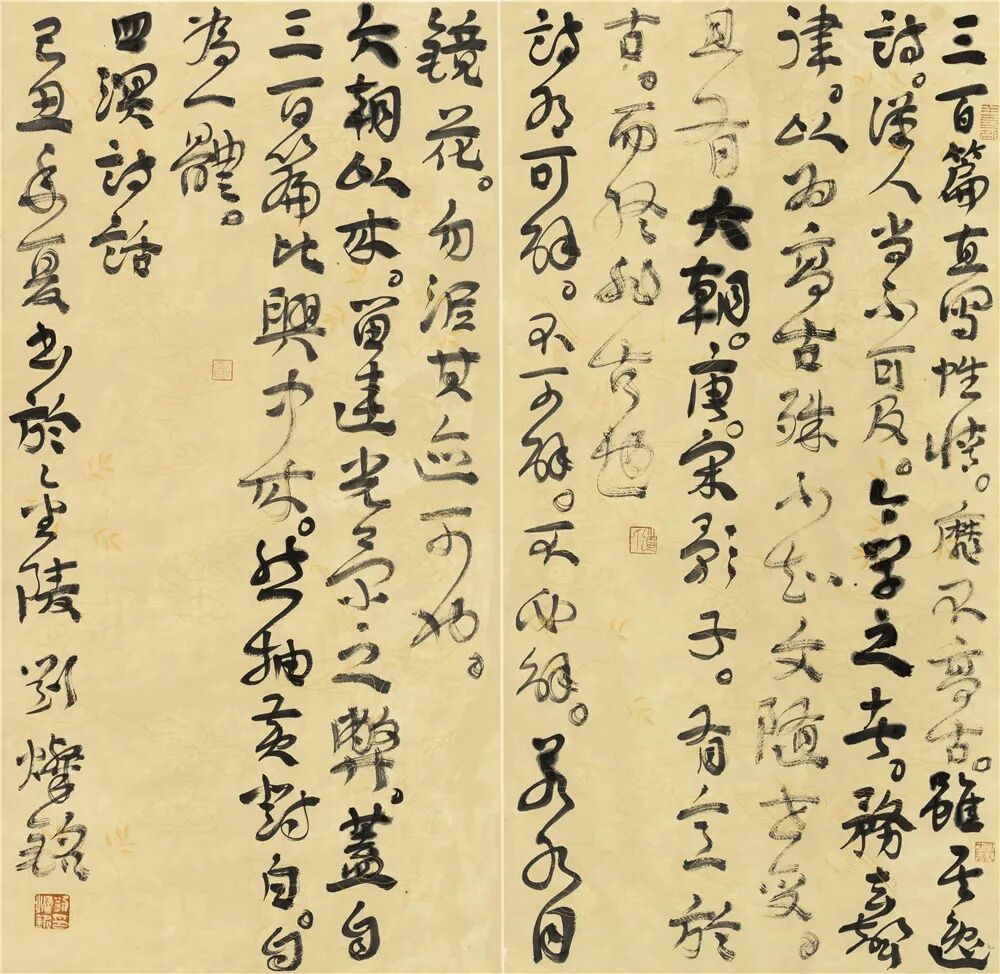 三百篇直寫性情。靡不高古。雖其逸
詩。漢人尚不可及。今學之者。務去聲
律。以為高古殊不知文隨世變。
且有六朝。唐。宋影子。有意於
古。而終非古也
詩有可解。不可解。不必解。若水月
鏡花。勿泥其迹可也。
六朝以來。留連光景之弊。蓋自
三百篇比興中來。然抽黃對白。自
為一體。
四溟詩話
己丑年夏書於金陵 劉燦銘